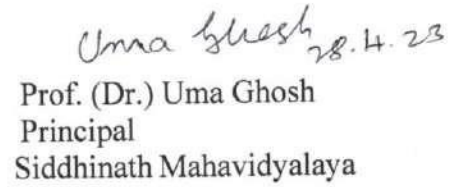 Uma Ghosh 28.4.23
Prof. (Dr.) Uma Ghosh
Principal
Siddhinath Mahavidyalaya